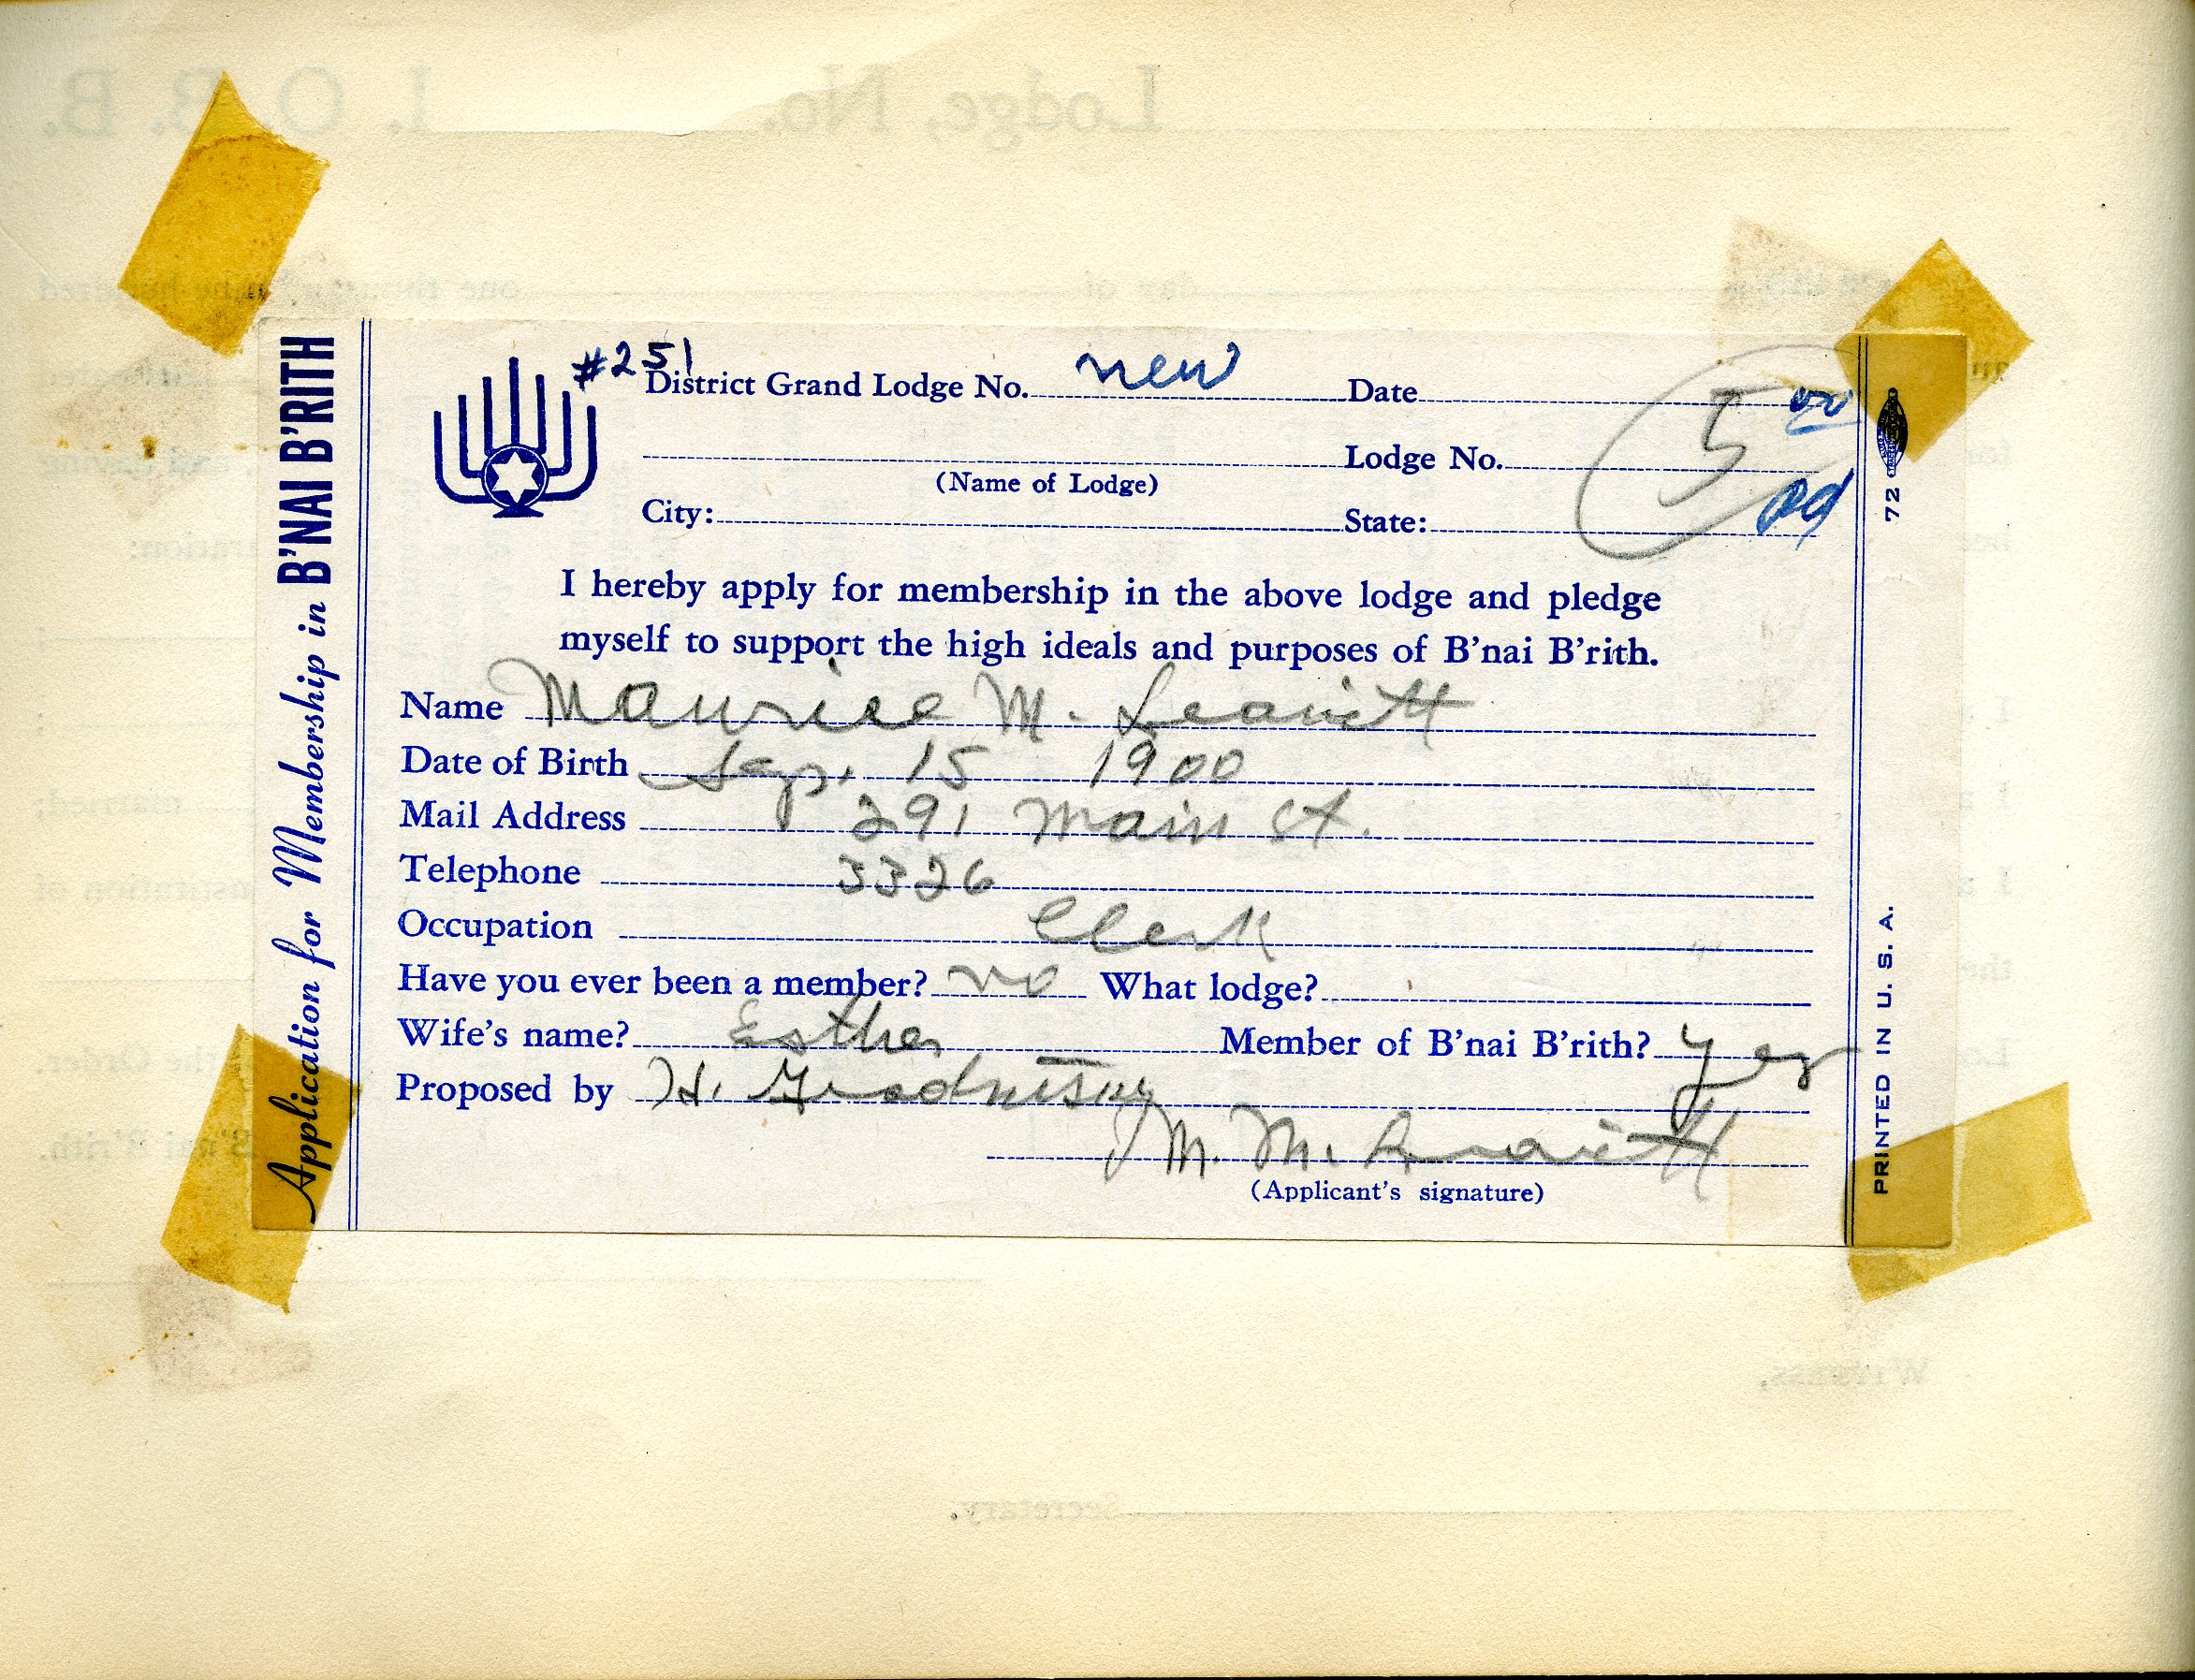 Lodge, No. I. O. B. B.
#251
District Grand Lodge No. new Date
5 00
Lodge No.
(Name of Lodge)
pd
City: State:
I hereby apply for membership in the above lodge and pledge
myself to support the high ideals and purposes of B'nai B'rith.
Name Maurice M. Leavitt
Date of Birth Sep. 15 1900
Mail Address 291 Main St.
Telephone 3326
Occupation Clerk
Have you ever been a member? no What lodge?
Wife's name? Esther Member of B'nai B'rith? yes
Proposed by H.
M. M. Leavitt
(Applicant's signature)
Application for Membership in B'NAI B'RITH
72
PRINTED IN U. S. A.
Witness,
Secretary.